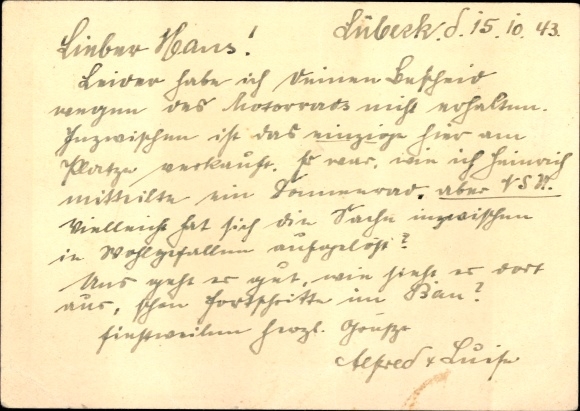 Lübeck, d. 15.10.43.
Lieber Hans!
Leider habe ich Deinen Bescheid
wegen des Motorrads nicht erhalten.
Inzwischen ist das einzige hier am
Platze verkauft. Es war, wie ich Heinrich
mitteilte ein Damenrad, aber NSU.
Vielleicht hat sich die Sache inzwischen
in Wohlgefallen aufgelöst?
Uns geht es gut, wie sieht es dort
aus, schon Fortschritte im Bau?
Einstweilen herzl. Grüsze
Alfred & Luise